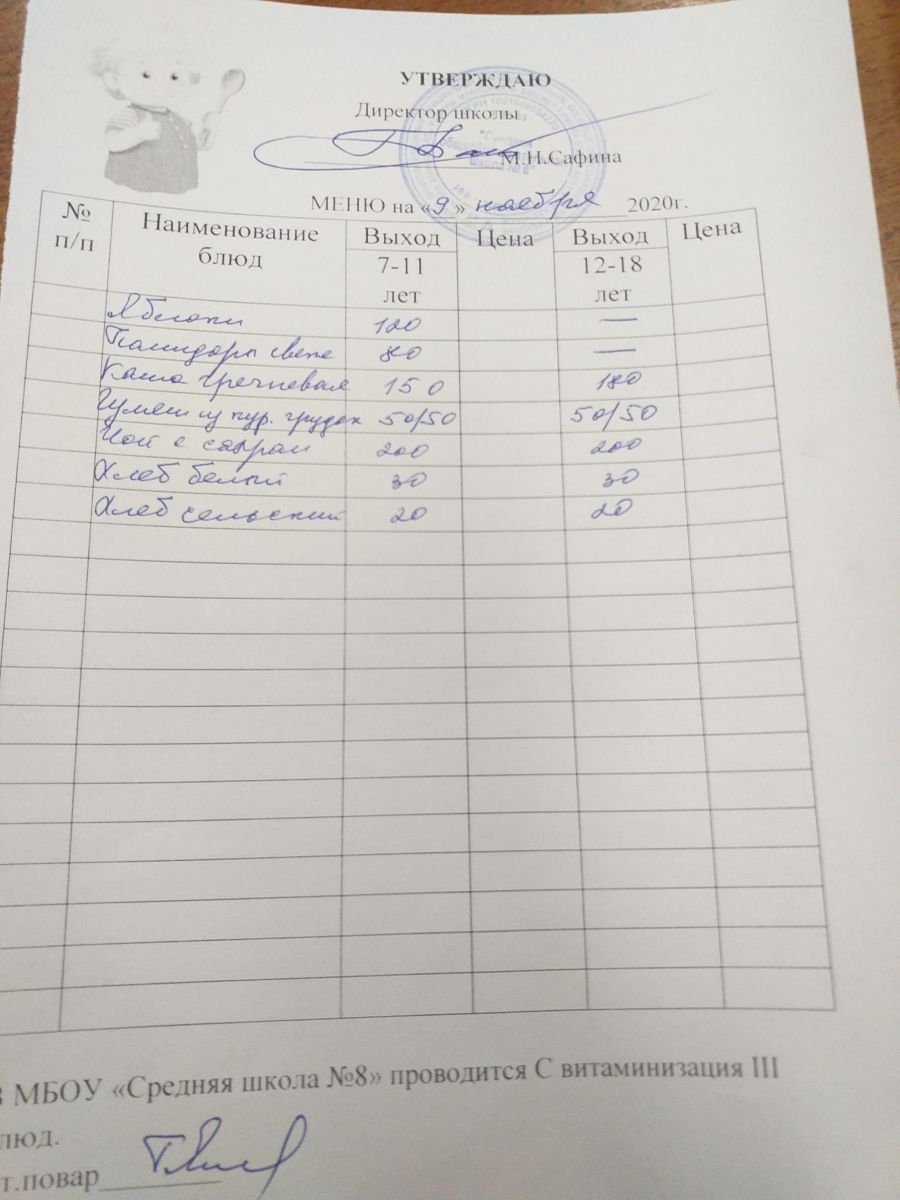 УТВЕРЖДАЮ
Директор школы
М.Н.Сафина
"Средняя
школа № 8"
МЕНЮ на «9» ноября 2020г.
№ п/п Наименование блюд Выход 7-11 лет Цена Выход 12-18 лет Цена
Яблоки 120 —
Помидоры свеже 80 —
Каша гречневая 150 180
Гуляш из кур. грудок 50/50 50/50
Чай с сахаром 200 200
Хлеб белый 30 30
Хлеб сельский 20 20
В МБОУ «Средняя школа №8» проводится С витаминизация III
люд.
т.повар